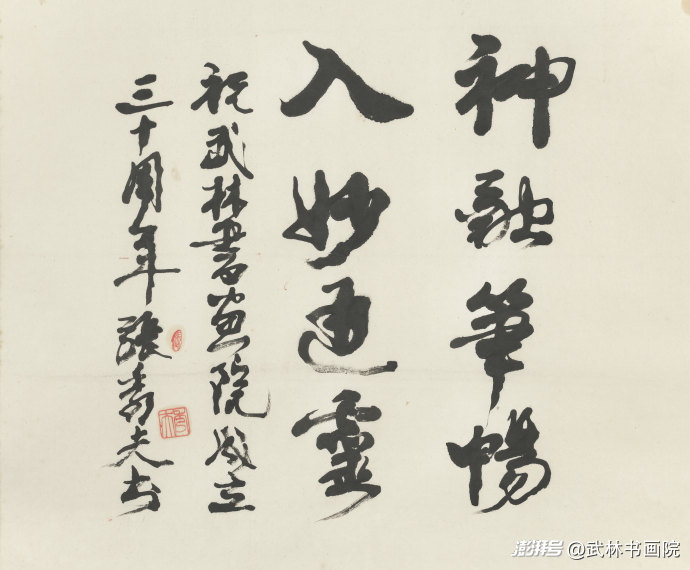 神融筆暢
入妙通靈
祝武林書畫院成立
三十周年 張秀夫书
澎湃号 @武林书画院